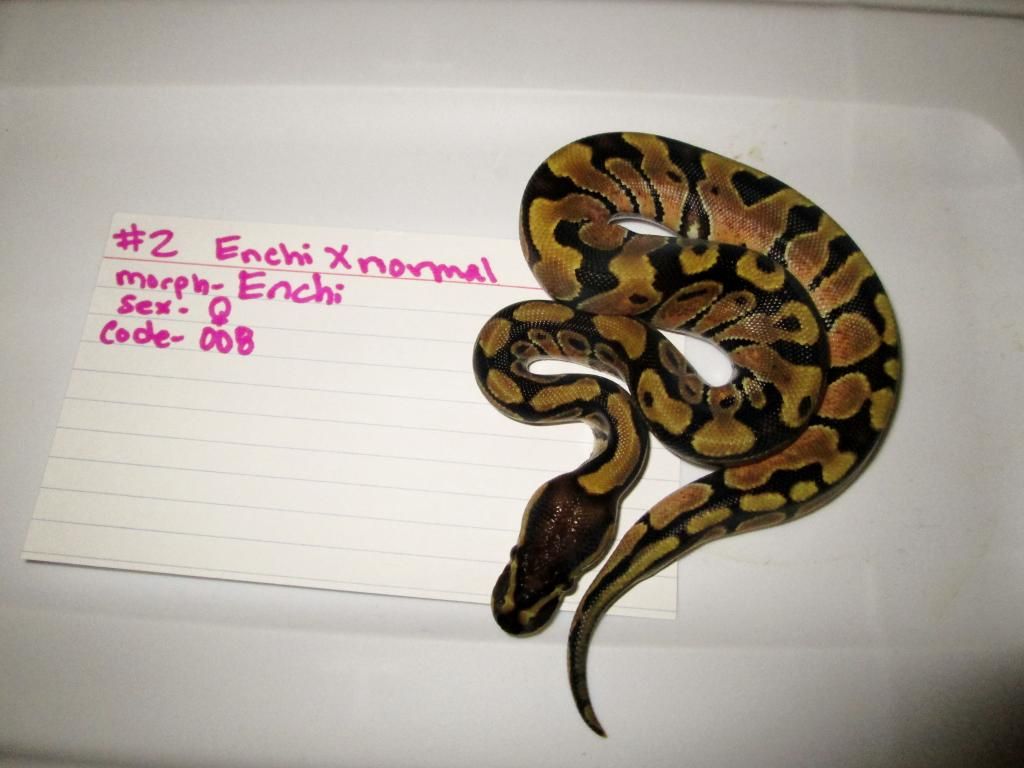 #2 Enchi X normal
morph- Enchi
sex- ♀
Code- 008